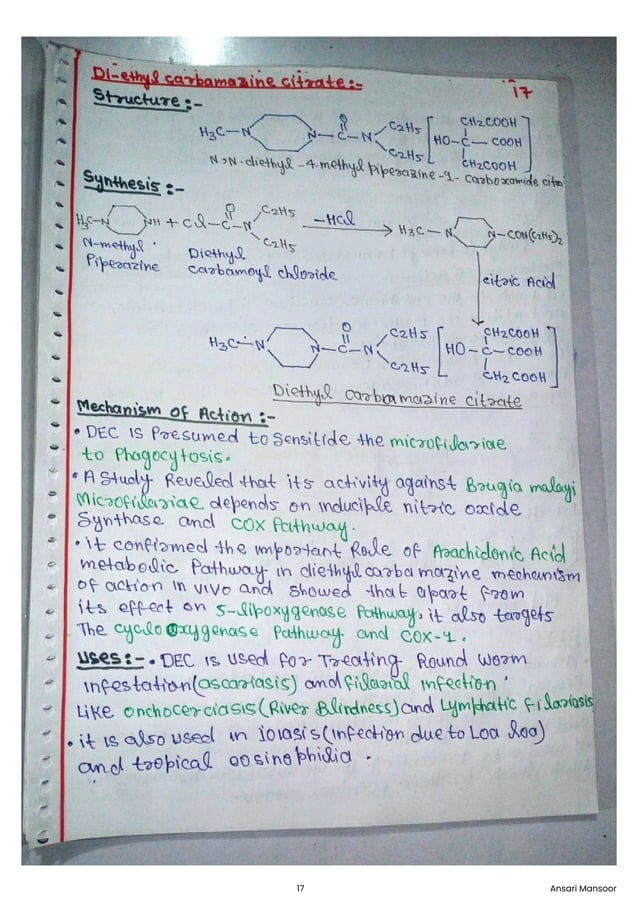 Di-ethyl carbamazine citrate:-
17
Structure:-
H3C-N N-C-N C2H5 C2H5 O
CH2COOH
HO-C-COOH
CH2COOH
N,N-diethyl-4-methyl piperazine-1-carboxamide citra
Synthesis:-
H3C-N NH + Cl-C-N O C2H5 C2H5 -HCl H3C-N N-CON(C2H5)2
N-methyl Piperazine
Diethyl carbamoyl chloride
citric Acid
H3C-N N-C-N O C2H5 C2H5
CH2COOH
HO-C-COOH
CH2COOH
Diethyl carbramazine citrate
Mechanism of Action:-
• DEC is Presumed to sensitide the microfilariae
to Phagocytosis.
• A Study Revealed that its activity against Brugia malayi
Microfilariae depends on inducible nitric oxide
Synthase and COX Pathway.
• it confirmed the important Role of Arachidonic Acid
metabolic Pathway in diethylcarbamazine mechanism
of action in vivo and showed that apart from
its effect on 5-lipoxygenase Pathway, it also targets
The cyclo oxygenase Pathway and COX-1.
Uses:- • DEC is used for Treating Round worm
infestation(ascariasis) and filarial infection
Like onchocerciasis(River Blindness) and Lymphatic filariasis
• it is also used in ioiasis(infection due to Loa loa)
and tropical eosinophilia.
17
Ansari Mansoor